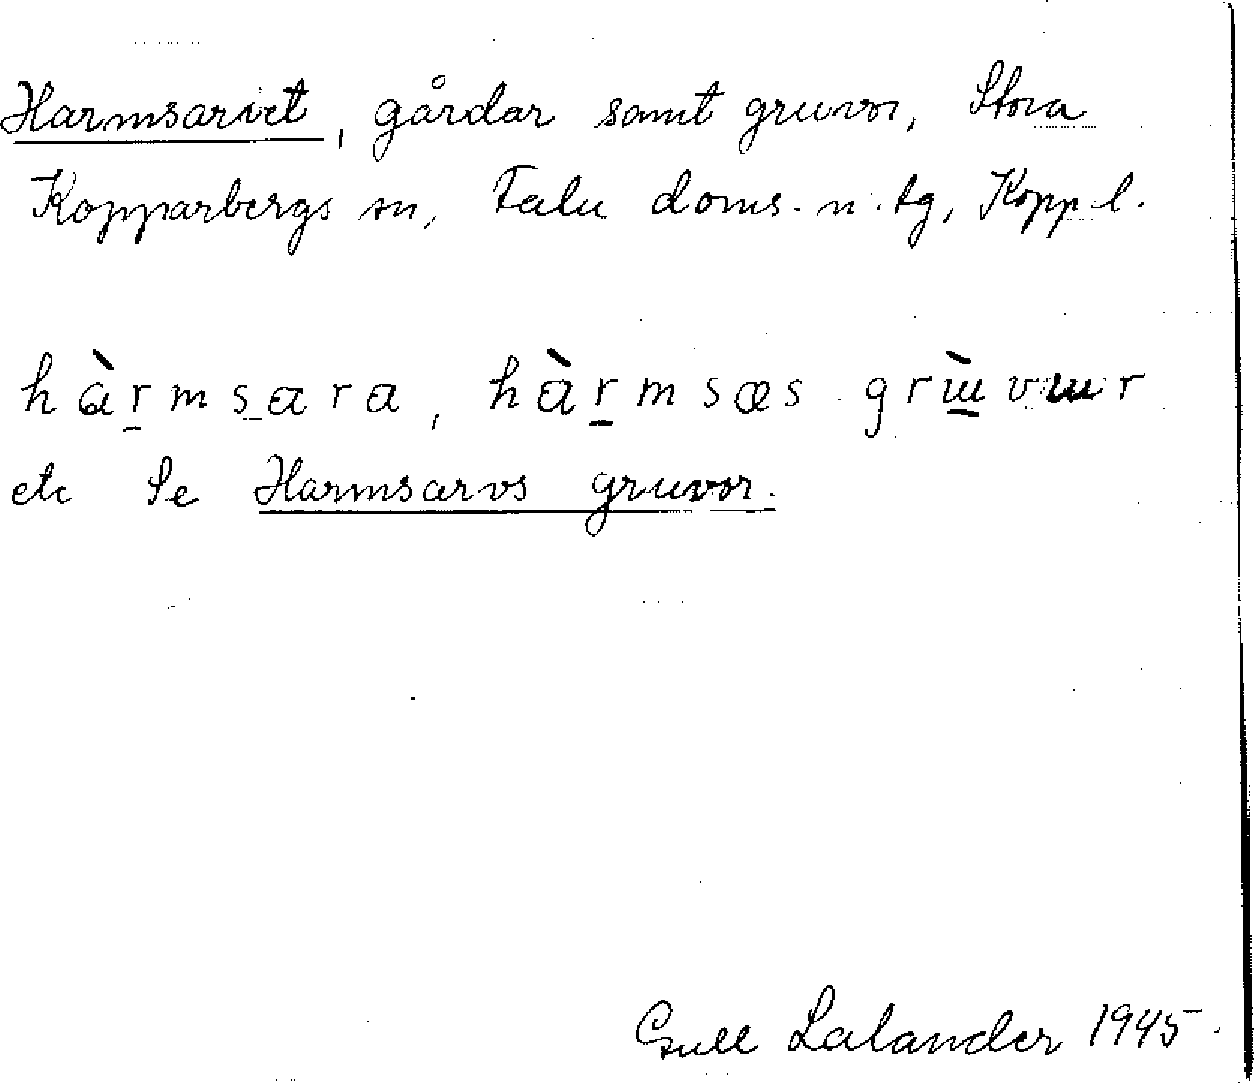 Harmsarvet, gårdar samt gruvor, Stora
Kopparbergs sn, Falu doms. n. tg, Kopp. l.
hàrmsara, hàrmsæs grɯ̀vɯr
etc Se Harmsarvs gruvor.
Gull Lalander 1945.